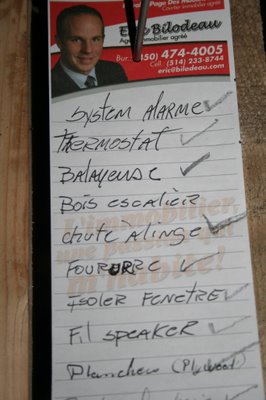 Eric Bilodeau
Agent immobilier agréé
Bur.: (450) 474-4005
Cell.: (514) 233-8744
eric@biledeau.com
SYSTEM ALARME
THERMOSTAT
BALAYEUSE
BOIS ESCALIER
CHUTE À LINGE
FOURURRE
ISOLER FENETRE
FIL SPEAKER
Planchers (Plywood)